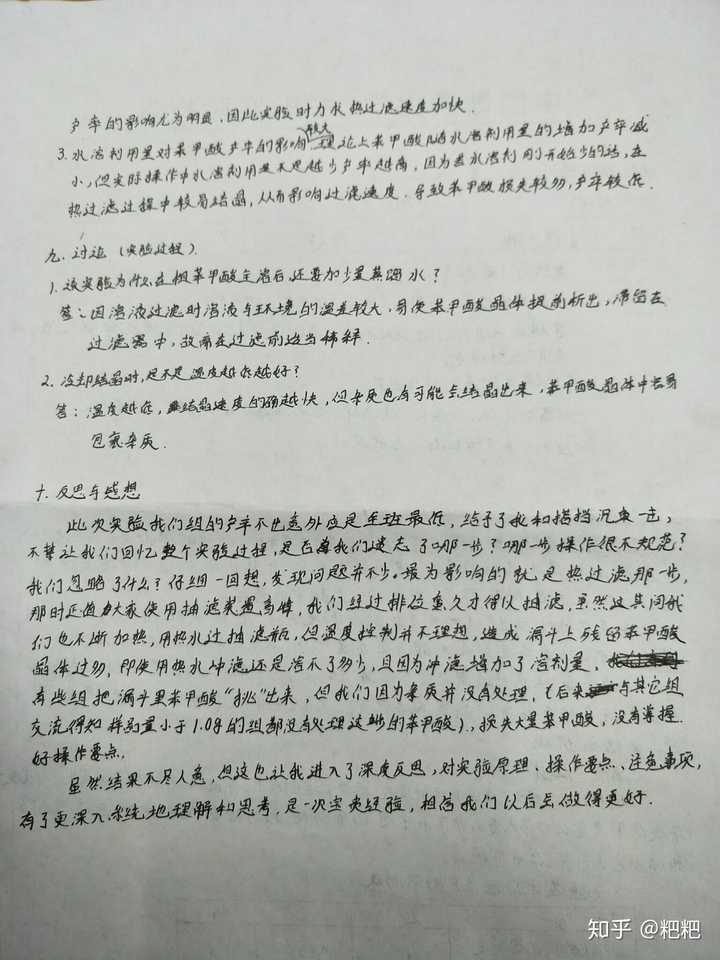 产率的影响尤为明显，因此实验时力求热过滤速度加快.
3. 水溶剂用量对苯甲酸产率的影响较大 理论上苯甲酸随水溶剂用量的增加产率减
小，但实际操作中水溶剂用量不是越少产率越高，因为若水溶剂刚开始少的话，在
热过滤过程中较易结晶，从而影响过滤速度. 导致苯甲酸损失较多，产率较低.
九. 讨论（实验过程）.
1. 该实验为什么在粗苯甲酸全溶后还要加少量蒸馏水？
答：因溶液过滤时溶液与环境的温差较大，易使苯甲酸晶体提前析出，滞留在
过滤器中，故需在过滤前适当稀释.
2. 冷却结晶时，是不是温度越低越好？
答：温度越低，结晶速度的确越快，但杂质也有可能会结晶出来，苯甲酸晶体中容易
包裹杂质.
十. 反思与感想
此次实验我们组的产率不出意外应是全班最低，给予了我和搭档沉重一击，
不禁让我们回忆整个实验过程，是否我们遗忘了哪一步？哪一步操作很不规范？
我们忽略了什么？仔细一回想，发现问题并不少。最为影响的就是热过滤那一步，
那时正值大家使用抽滤装置高峰，我们经过排位重久才得以抽滤，虽然这其间我
们也不断加热，用热水过抽滤瓶，但温度控制并不理想，造成漏斗上残留苯甲酸
晶体过多，即使用热水冲滤还是溶不了多少，且因为冲滤增加了溶剂量，
有些组把漏斗里苯甲酸“挑”出来，但我们因为杂质并没有处理，（后来与其它组
交流得知样别量小于1.0g的组都没有处理这些的苯甲酸），损失大量苯甲酸，没有掌握
好操作要点.
虽然结果不尽人意，但这也让我进入了深度反思，对实验原理、操作要点、注意事项，
有了更深入系统地理解和思考，是一次宝贵经验，相信我们以后会做得更好.
知乎 @粑粑